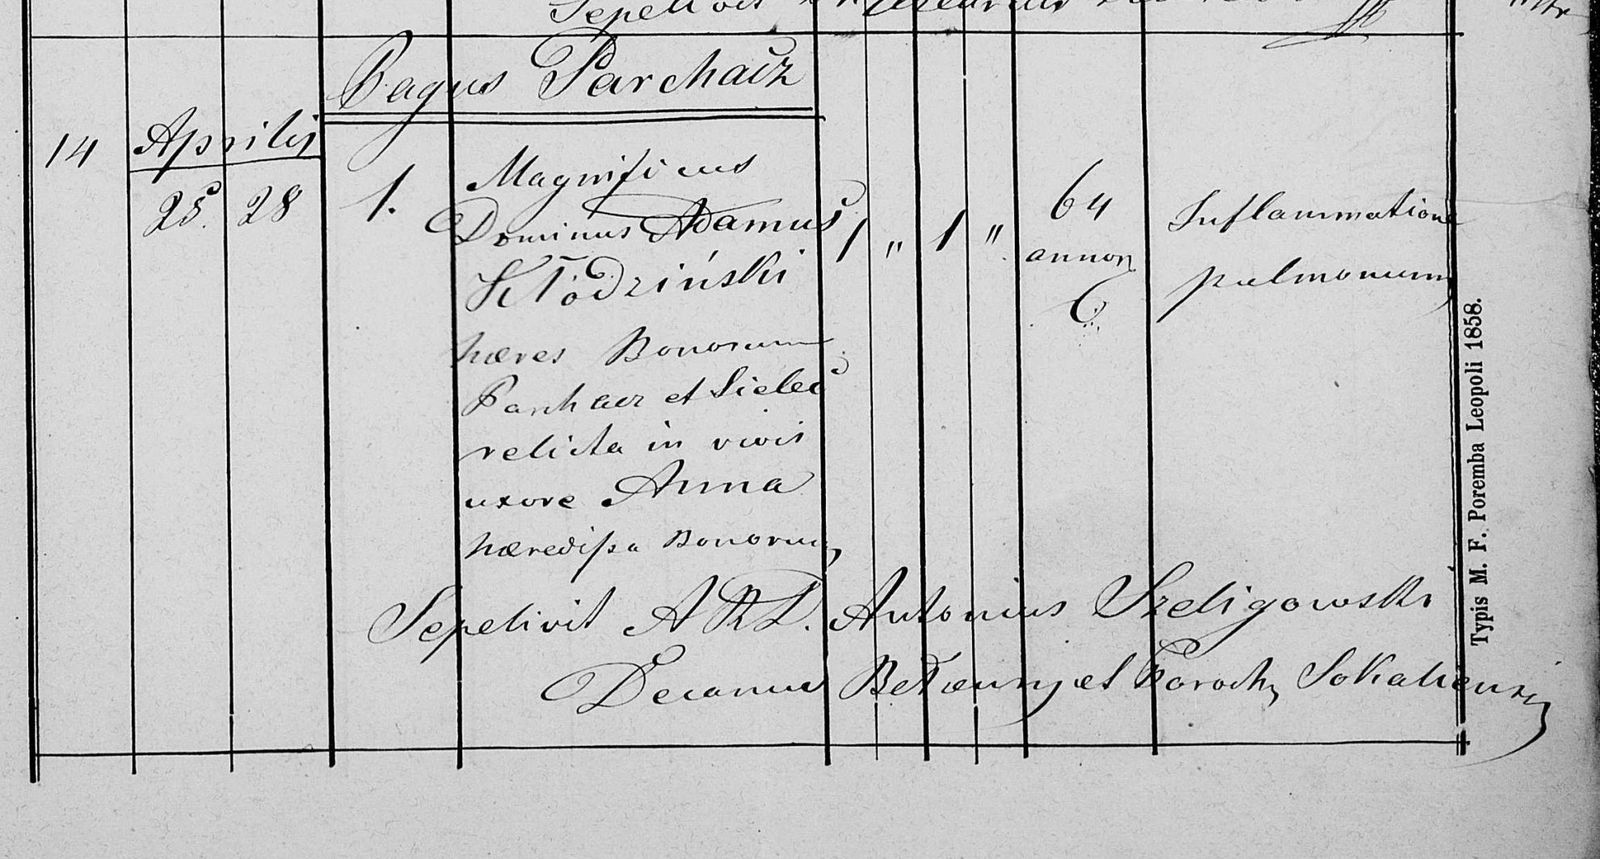 Sepelivit
Pagus Parchacz
14 Aprilis
25. 28 1. Magnificus
Dominus Adamus 1 " 1 " 64 Inflammatione
Kłodziński annor pulmonum
hæres Bonorum
Parchacz et Sielec
relicta in vivis
uxore Anna
hæredissa Bonorum
Sepelivit ARD. Antonius Szeligowski
Decanus Belzensis et Paroch Sokaliensis
Typis M. F. Poremba Leopoli 1858.